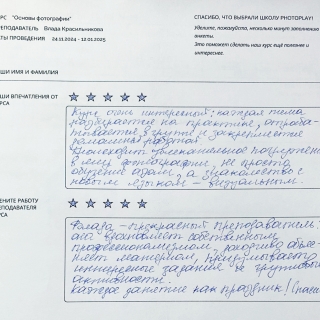 РС "Основы фотографии"
ЕПОДАВАТЕЛЬ Влада Красильникова
ТЫ ПРОВЕДЕНИЯ 24.11.2024 - 12.01.2025
СПАСИБО, ЧТО ВЫБРАЛИ ШКОЛУ PHOTOPLAY!
Уделите, пожалуйста, несколько минут заполнению
анкеты.
Это поможет сделать наш курс ещё полезнее и
интереснее.
ШИ ИМЯ И ФАМИЛИЯ
ШИ ВПЕЧАТЛЕНИЯ ОТ
РСА
Курс очень интересный: каждая тема
разбирается на практике, отраба-
тывается в группе и закрепляется
домашней работой.
Происходит увлекательное погружение
в мир фотографии, не просто
обучение азам, а знакомство с
новым языком - визуальным.
ЕНИТЕ РАБОТУ
ЕПОДАВАТЕЛЯ
РСА
Влада - прекрасный преподаватель:
она вдохновляет собственным
профессионализмом, доходчиво объяс-
няет материал, придумывает
интересные задания и групповые
активности.
Каждое занятие как праздник!